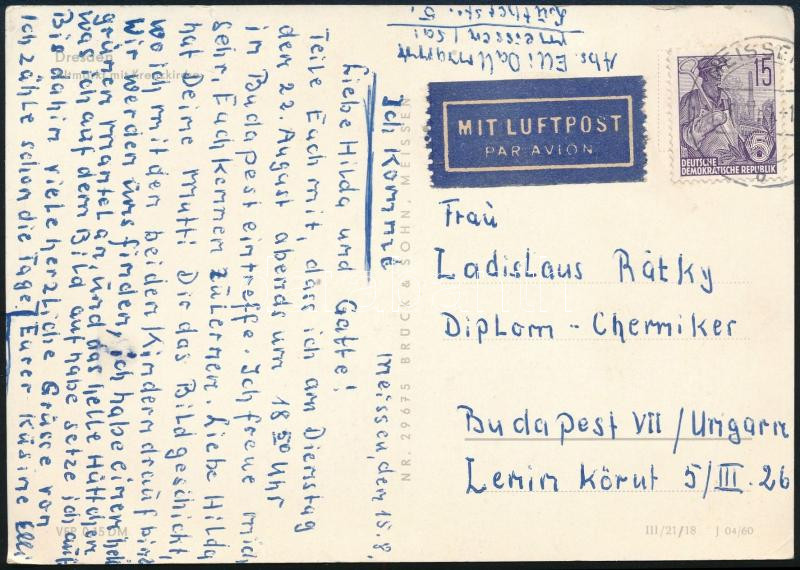 Abs. Elli Dallmann
Meissen / Sa.
Lutherstr. 5.
MEISSEN
15
DEUTSCHE
DEMOKRATISCHE REPUBLIK
MIT LUFTPOST
PAR AVION
Frau
Ladislaus Rátky
Diplom - Chemiker
Budapest VII / Ungarn
Lenin Körut 5/III. 26
Meissen, den 15.8.
Ich komme
Liebe Hilda und Gatte!
Teile Euch mit, dass ich am Dienstag
den 22. August abends um 18 50 Uhr
in Budapest eintreffe. Ich freue mich
sehr Euch kennen zu lernen. Liebe Hilda
hat Deine Mutti Dir das Bild geschickt,
wo ich mit den beiden Kindern drauf bin.
Wir werden uns finden, ich habe einen
grünen Mantel an, und das helle Hütchen
was ich auf dem Bild auf habe setze ich auf.
Bis dahin viele herzliche Grüsse von
Eurer Küsine Elli
Ich zähle schon die Tage!
Dresden
Altmarkt mit Kreuzkirche
NR. 29675 BRÜCK & SOHN, MEISSEN
VEP 0,15 DM
III/21/18 J 04/60